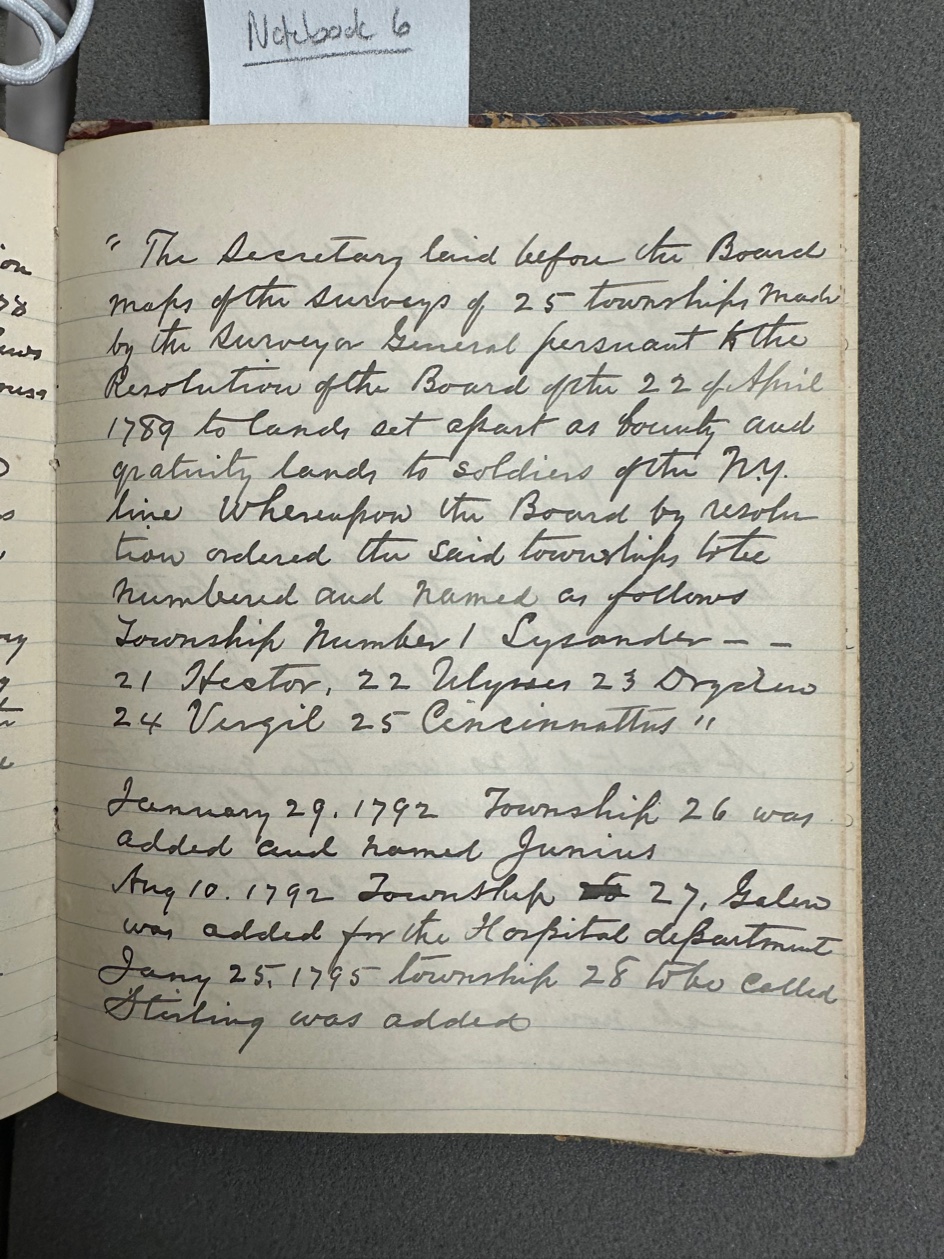 Notebook 6
on
78
laws
" The Secretary laid before the Board
maps of the surveys of 25 townships made
by the Surveyor General persuant to the
Resolution of the Board of the 22 of April
1789 to lands set apart as bounty and
gratuity lands to soldiers of the N.Y.
line Whereupon the Board by resolu
tion ordered the said townships to be
numbered and named as follows
Township Number 1 Lysander – –
21 Hector, 22 Ulysses 23 Dryden
24 Vergil 25 Cincinnattus "
January 29. 1792 Township 26 was
added and named Junius
Aug 10. 1792 Township 27, Galen
was added for the Hospital department
Jany 25, 1795 township 28 to be called
Sterling was added